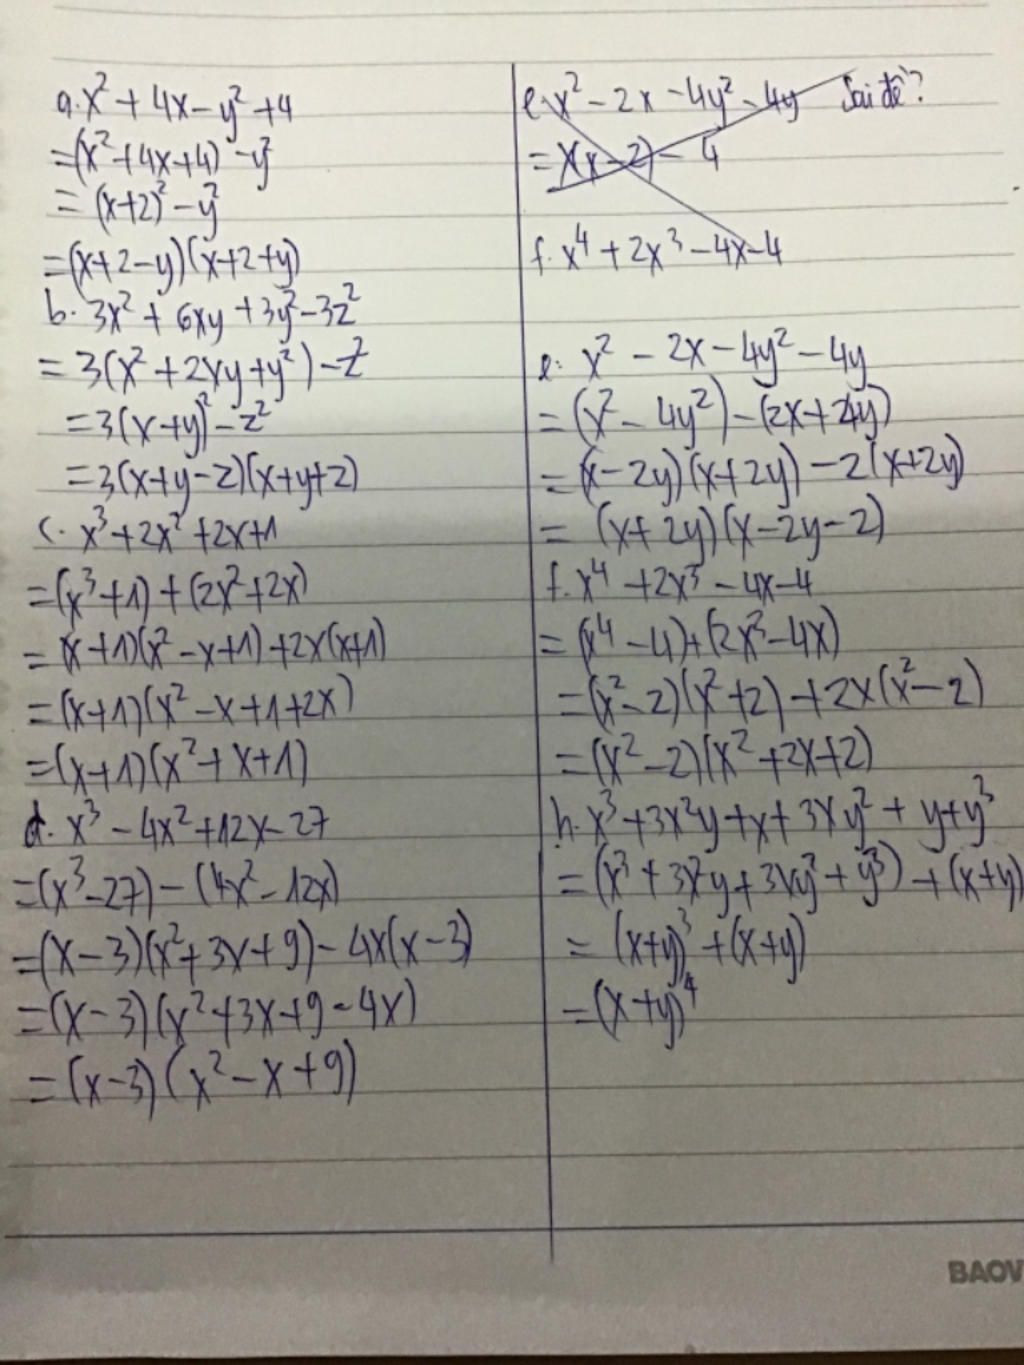 a. x² + 4x - y² + 4
= (x² + 4x + 4) - y²
= (x+2)² - y²
= (x+2-y)(x+2+y)
b. 3x² + 6xy + 3y² - 3z²
= 3(x² + 2xy + y²) - z²
= 3(x+y)² - z²
= 3(x+y-z)(x+y+z)
c. x³ + 2x² + 2x + 1
= (x³+1) + (2x²+2x)
= (x+1)(x² - x + 1) + 2x(x+1)
= (x+1)(x² - x + 1 + 2x)
= (x+1)(x² + x + 1)
d. x³ - 4x² + 12x - 27
= (x³ - 27) - (4x² - 12x)
= (x-3)(x² + 3x + 9) - 4x(x-3)
= (x-3)(x² + 3x + 9 - 4x)
= (x-3)(x² - x + 9)
e. x² - 2x - 4y² - 4y Sai đề?
= x(x-2) - 4
f. x⁴ + 2x³ - 4x - 4
e. x² - 2x - 4y² - 4y
= (x² - 4y²) - (2x + 4y)
= (x-2y)(x+2y) - 2(x+2y)
= (x+2y)(x-2y-2)
f. x⁴ + 2x³ - 4x - 4
= (x⁴ - 4) + (2x³ - 4x)
= (x² - 2)(x² + 2) + 2x(x² - 2)
= (x² - 2)(x² + 2x + 2)
h. x³ + 3x²y + x + 3xy² + y + y³
= (x³ + 3x²y + 3xy² + y³) + (x+y)
= (x+y)³ + (x+y)
= (x+y)⁴
BAOV